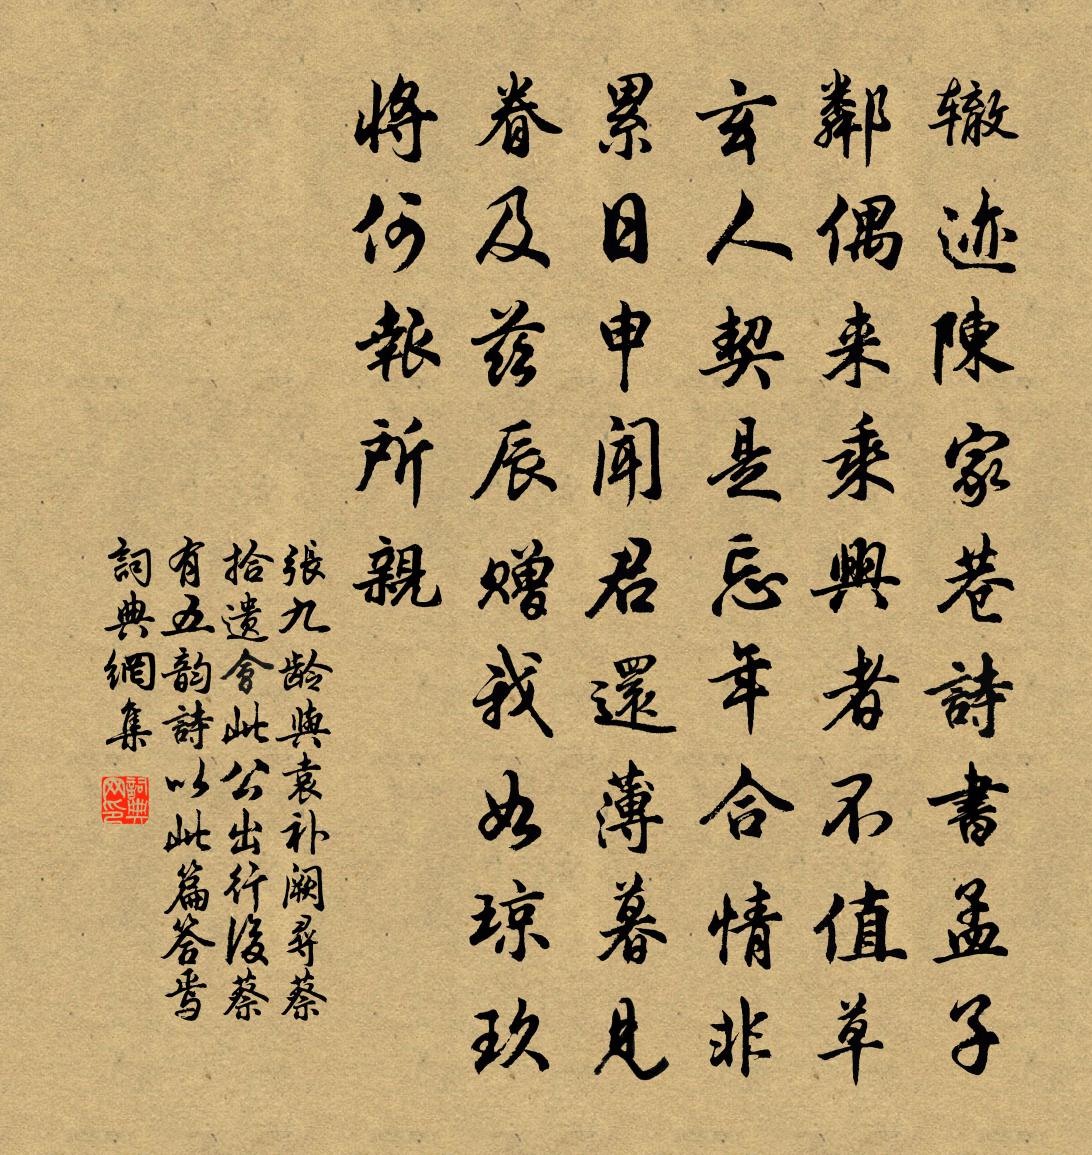 辙迹陳家巷詩書孟子
鄰偶来乘興者不值草
玄人契是忘年合情非
累日申聞君還薄暮見
眷及兹辰赠我如琼玖
將何報所親
張九龄與袁补阙尋蔡
拾遗會此公出行後蔡
有五韵詩以此篇答焉
詞典網集
詞典网印